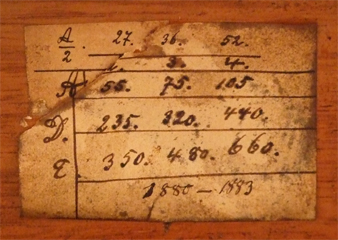 A/2. 27. 36. 52.
3. 4.
A 55. 75. 105
D. 235. 320. 440.
E 350. 480. 660.
1880 – 1883